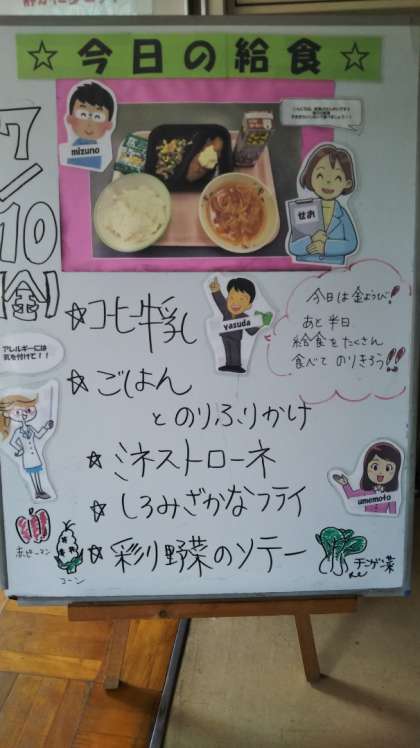 ☆今日の給食☆
7/10【金】
mizuno
せお
yasuda
今日は金ようび!
あと半日
給食をたくさん
食べて のりきろう!!
アレルギーには
気を付けて!!
☆コーヒー牛乳
☆ごはん
とのりふりかけ
☆ミネストローネ
☆しろみざかなフライ
☆彩り野菜のソテー
umemoto
赤ピーマン
コーン
チンゲン菜